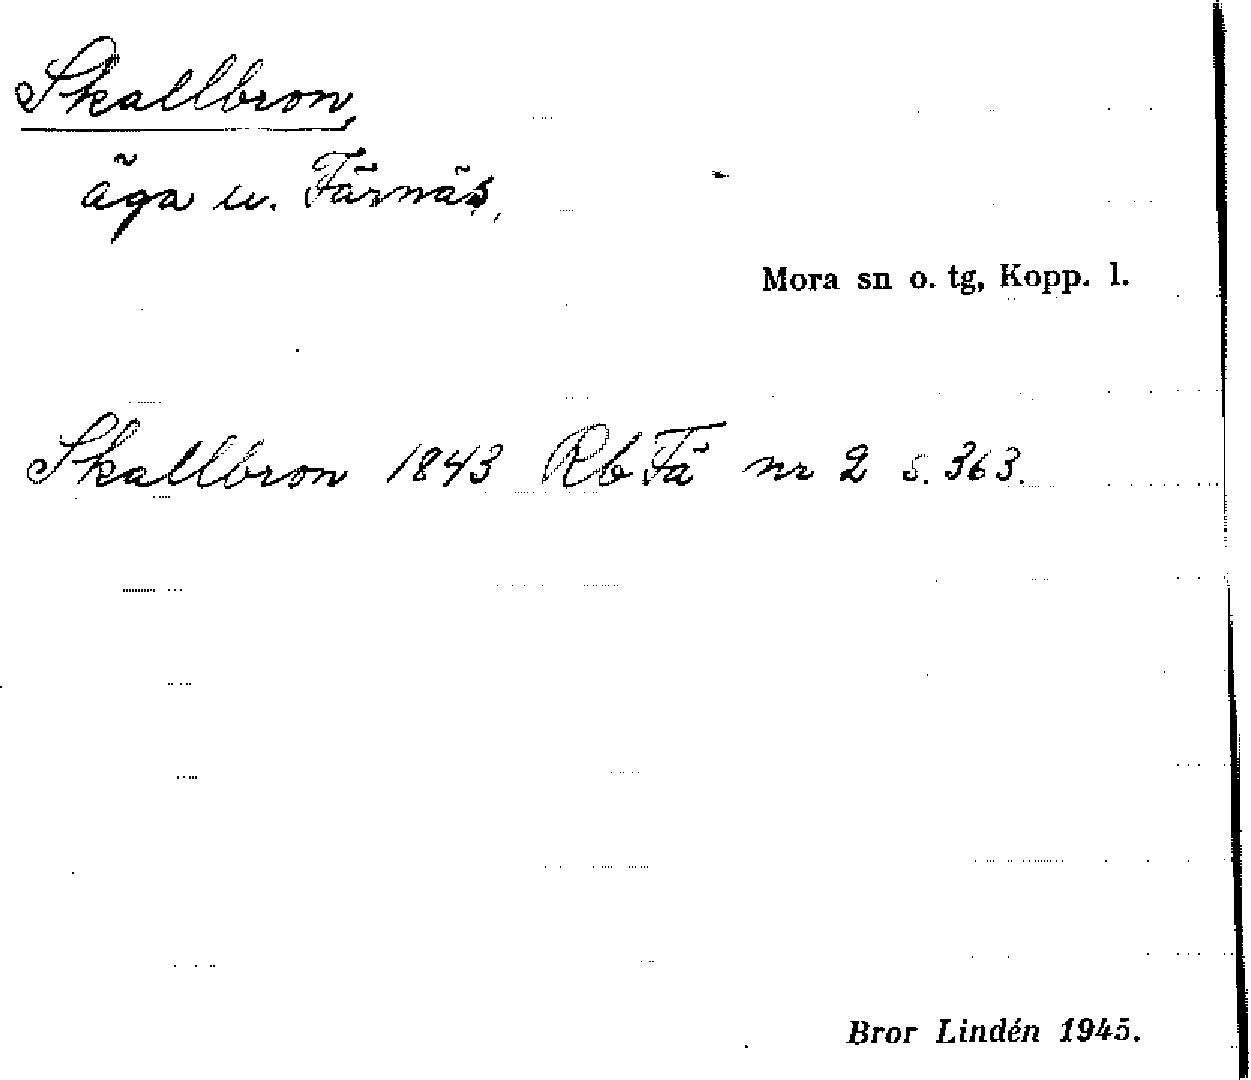 Skallbron,
äga u. Färnäs,
Mora sn o. tg, Kopp. l.
Skallbron 1843 Rb Fä nr 2 s. 363.
Bror Lindén 1945.